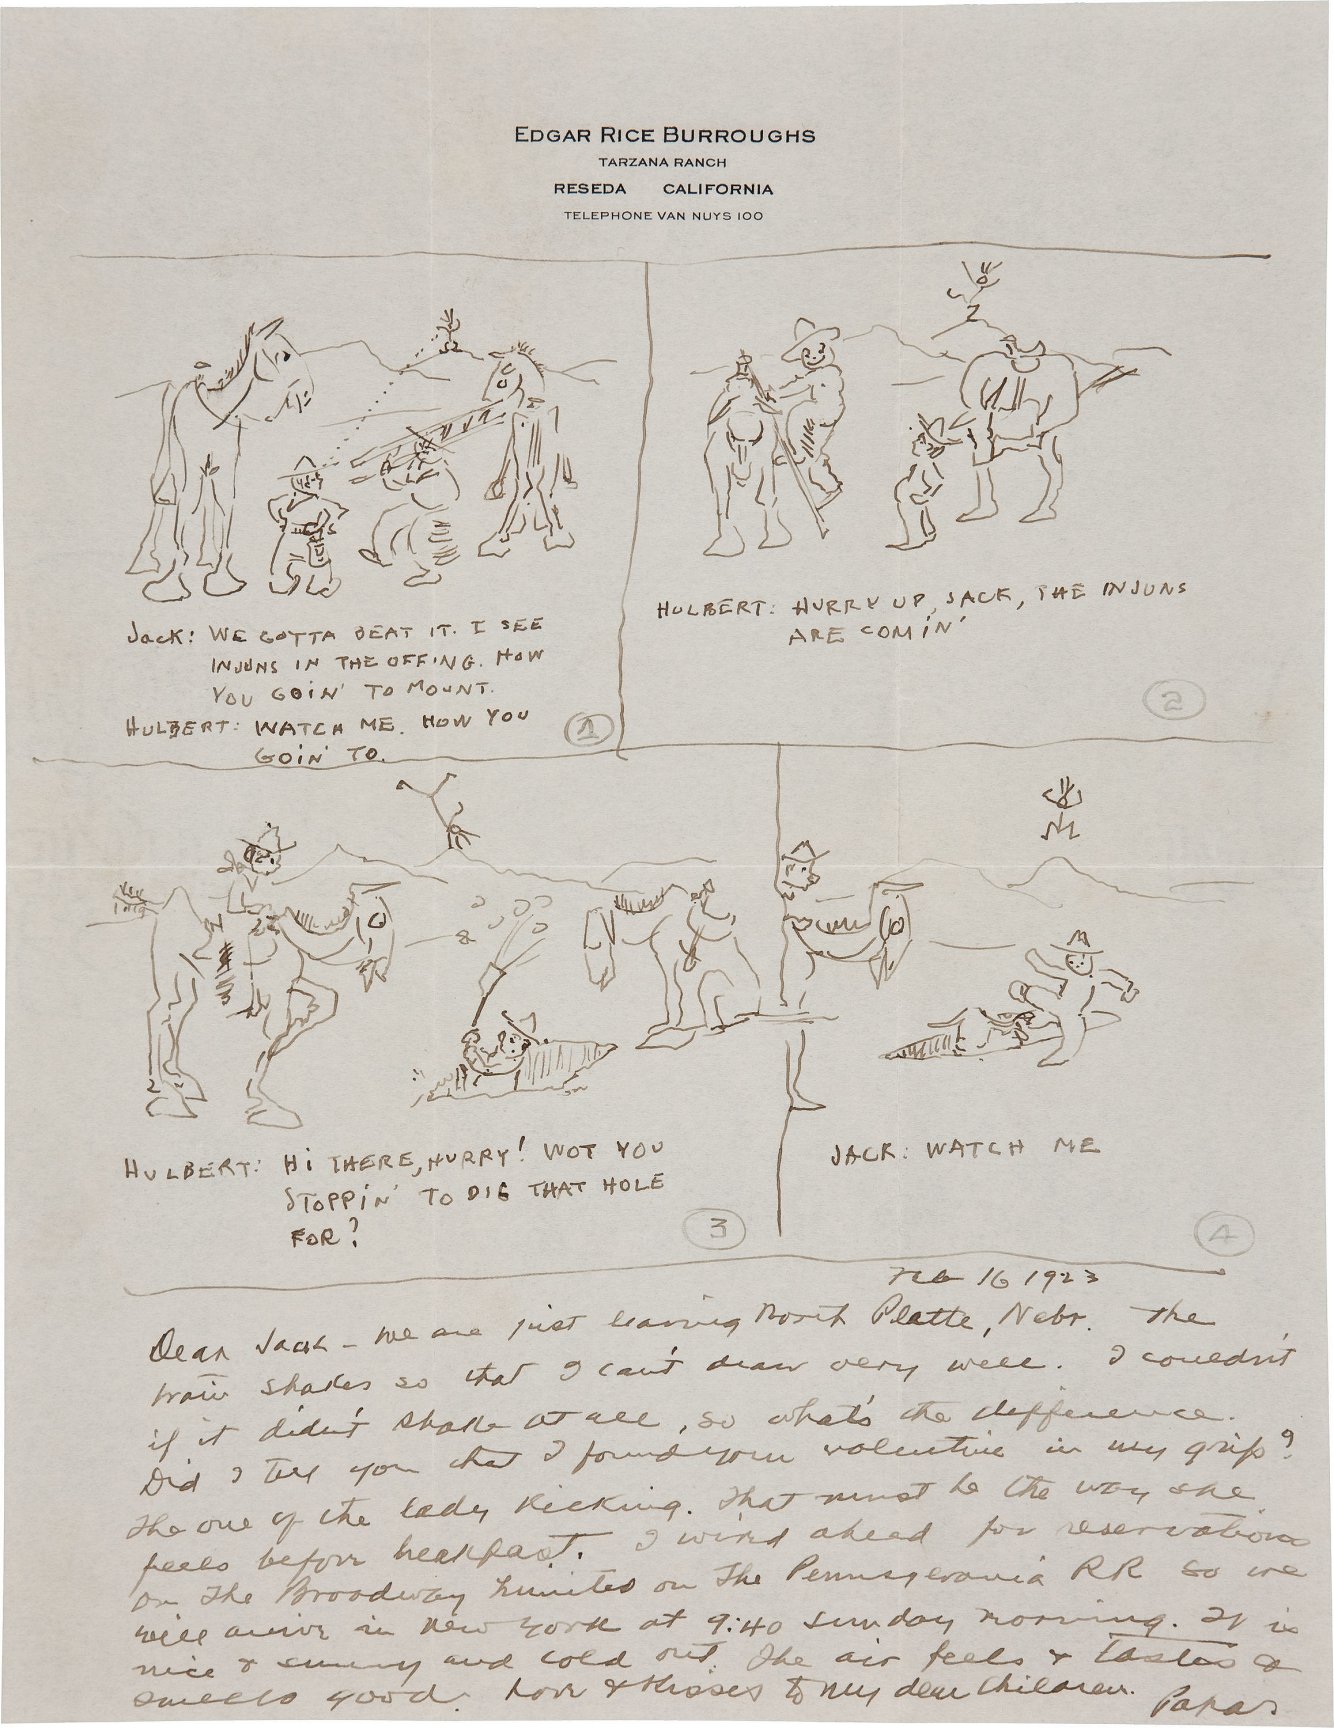 EDGAR RICE BURROUGHS
TARZANA RANCH
RESEDA CALIFORNIA
TELEPHONE VAN NUYS 100
JACK: WE GOTTA BEAT IT. I SEE
INJUNS IN THE OFFING. HOW
YOU GOIN' TO MOUNT.
HULBERT: WATCH ME. HOW YOU
GOIN' TO.
1
HULBERT: HURRY UP, JACK, THE INJUNS
ARE COMIN'
2
HULBERT: HI THERE, HURRY! WOT YOU
STOPPIN' TO DIG THAT HOLE
FOR?
3
JACK: WATCH ME
4
Feb 16 1923
Dear Jack – We are just leaving North Platte, Nebr. The
train shakes so that I can't draw very well. I couldn't
if it didn't shake at all, so what's the difference.
Did I tell you that I found your valentine in my grip?
The one of the lady kicking. That must be the way she
feels before breakfast. I wired ahead for reservations
on the Broadway Limited on the Pennsylvania RR so we
will arrive in New York at 9:40 Sunday morning. It is
nice & sunny and cold out. The air feels & tastes &
smells good. Love & kisses to my dear children.
Papa